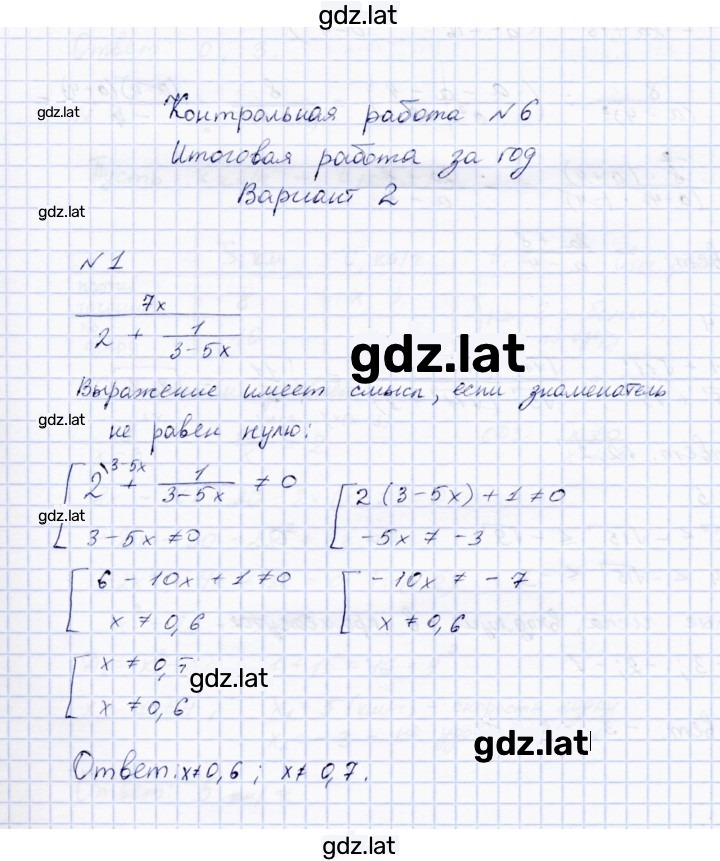 gdz.lat
gdz.lat
Контрольная работа №6
Итоговая работа за год
gdz.lat
Вариант 2
№1
7x
2 + 1
3-5x
gdz.lat
Выражение имеет смысл, если знаменатель
gdz.lat
не равен нулю:
[ 2^3-5x + 1/(3-5x) ≠ 0
gdz.lat
3-5x ≠ 0
[ 2(3-5x)+1≠0
-5x ≠ -3
[ 6-10x+1≠0
x ≠ 0,6
[ -10x ≠ -7
x ≠ 0,6
[ x ≠ 0,7
gdz.lat
x ≠ 0,6
gdz.lat
Ответ: x≠0,6; x≠0,7.
gdz.lat